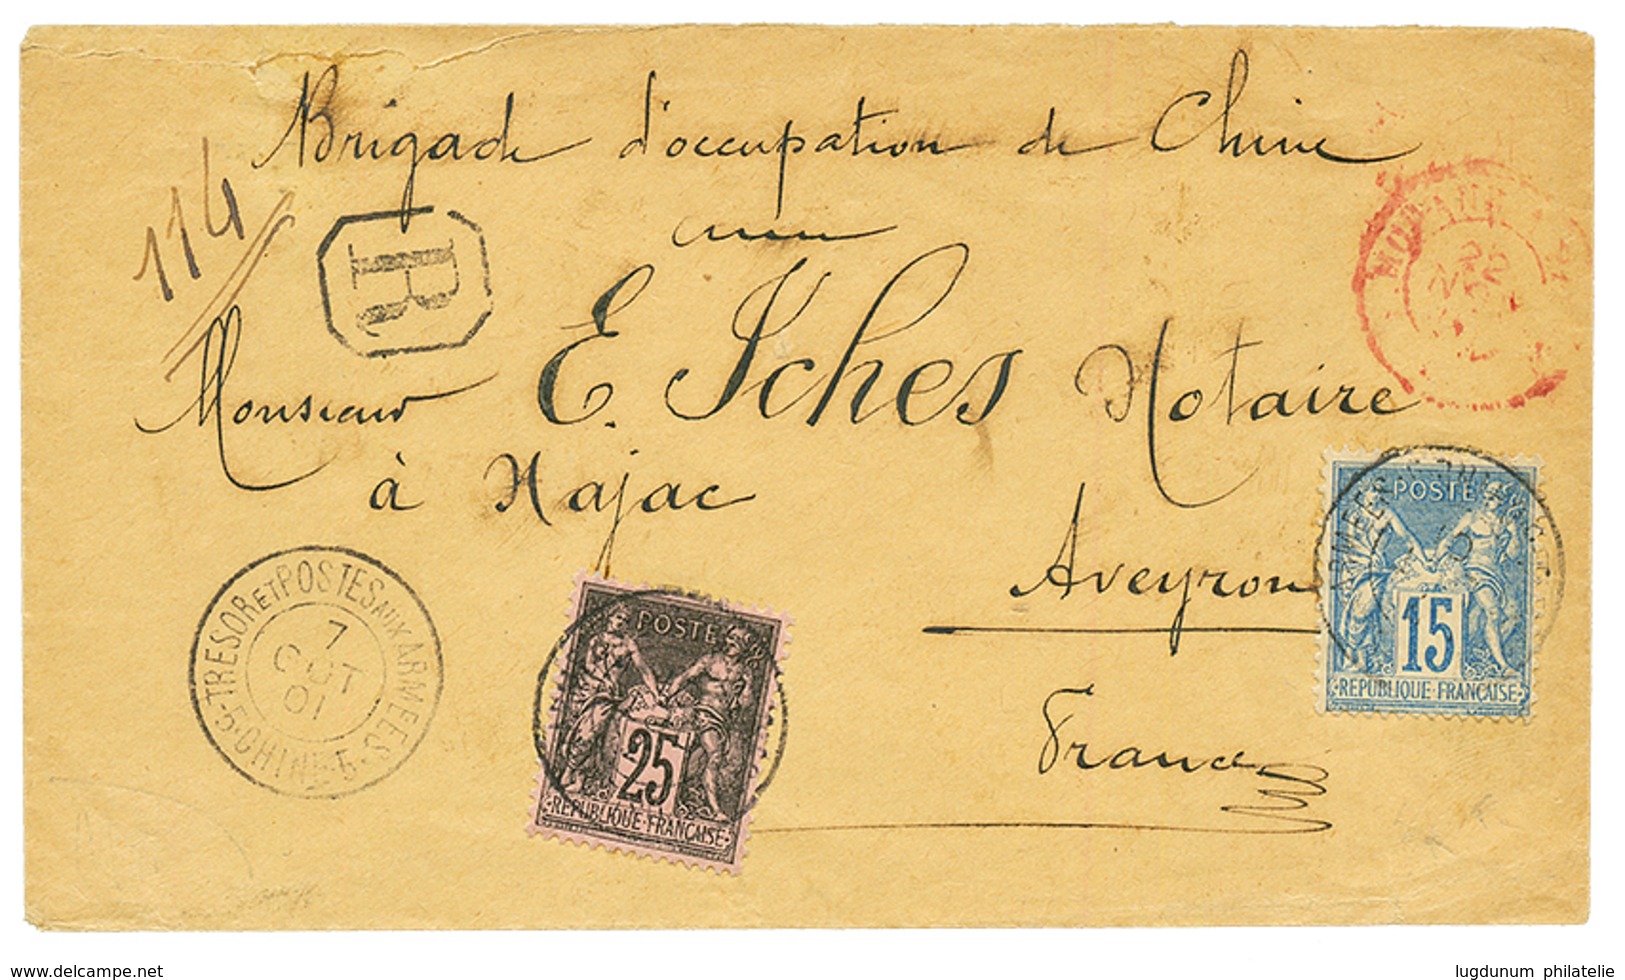 Brigade d'occupation de Chine
114
R
Monsieur E. Iches Notaire
à Najac
Aveyron
France
TRESOR ET POSTES AUX ARMEES
7
OCT
01
5 · CHINE · 5
POSTE
25
REPUBLIQUE FRANÇAISE
POSTE
15
REPUBLIQUE FRANÇAISE
www.delcampe.net
lugdunum philatelie